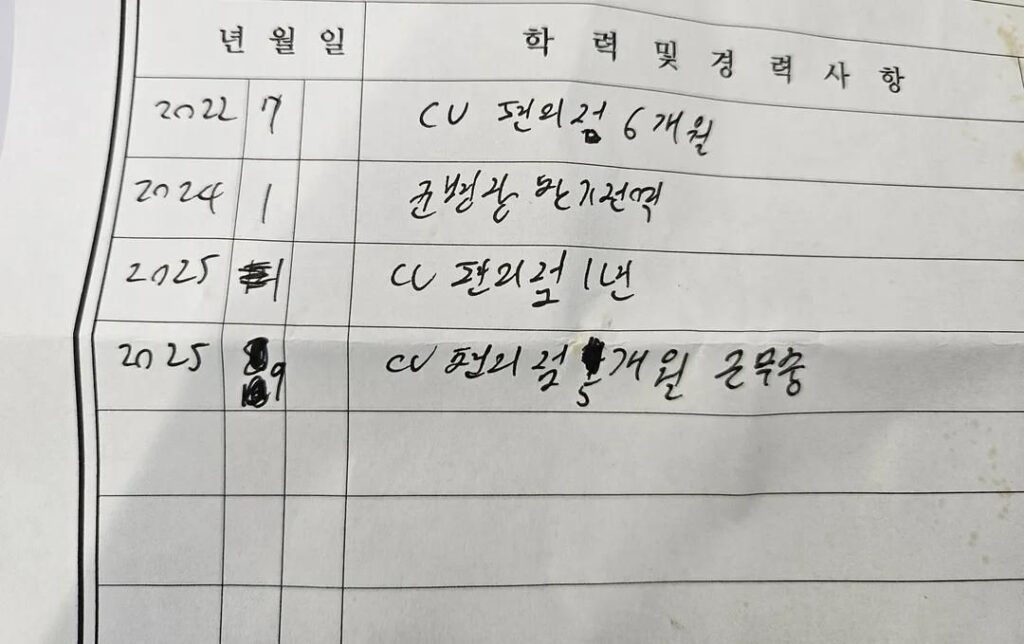 년 월 일 학 력 및 경 력 사 항
2022 7 CU 편의점 6개월
2024 1 군병장 만기전역
2025 1 CU 편의점 1년
2025 9 CU 편의점 5개월 근무중